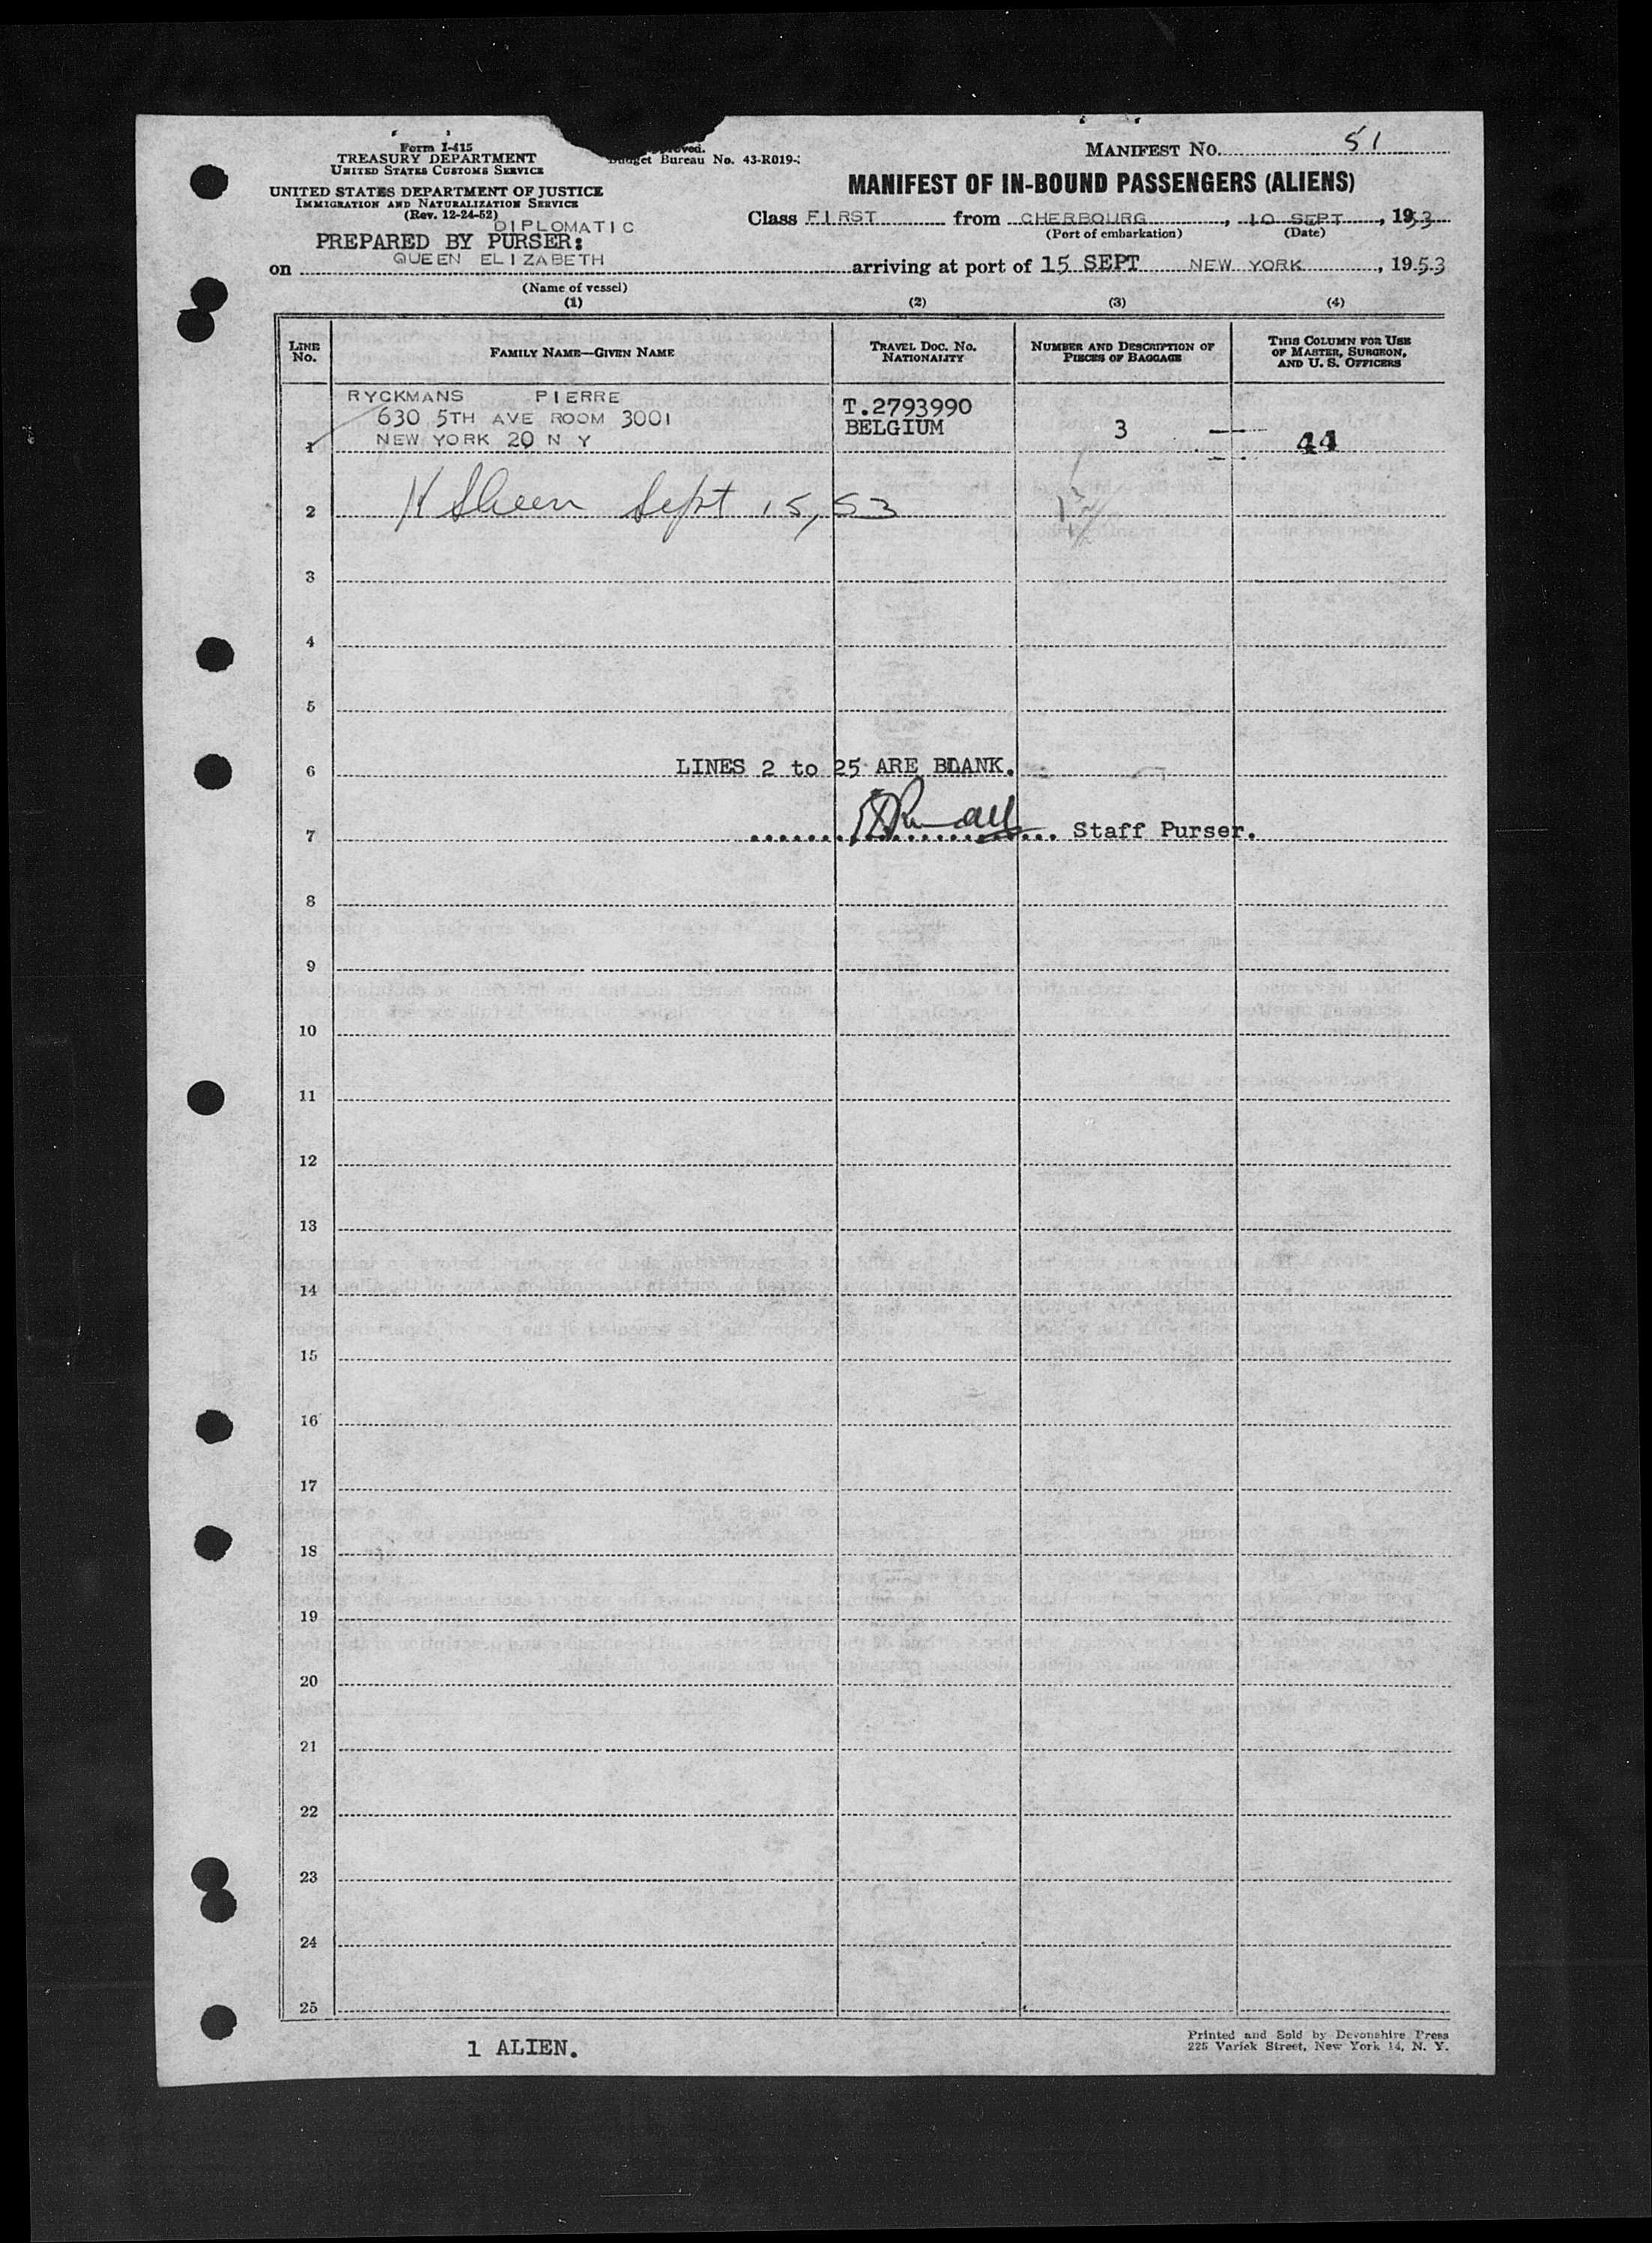 Form I-415
TREASURY DEPARTMENT
UNITED STATES CUSTOMS SERVICE
UNITED STATES DEPARTMENT OF JUSTICE
IMMIGRATION AND NATURALIZATION SERVICE
(Rev. 12-24-52)
Budget Bureau No. 43-R019-
MANIFEST NO. 51
MANIFEST OF IN-BOUND PASSENGERS (ALIENS)
DIPLOMATIC
PREPARED BY PURSER:
Class FIRST from CHERBOURG, 10 SEPT, 1953
(Port of embarkation) (Date)
on QUEEN ELIZABETH arriving at port of 15 SEPT NEW YORK, 1953
(Name of vessel)
(1) (2) (3) (4)
LINE NO. FAMILY NAME—GIVEN NAME TRAVEL DOC. NO. NATIONALITY NUMBER AND DESCRIPTION OF PIECES OF BAGGAGE THIS COLUMN FOR USE OF MASTER, SURGEON, AND U. S. OFFICERS
RYCKMANS PIERRE T.2793990
630 5TH AVE ROOM 3001 BELGIUM
1 NEW YORK 20 N Y 3 44
2 K Sheen Sept 15, 53
3
4
5
6 LINES 2 to 25 ARE BLANK.
7 Staff Purser.
8
9
10
11
12
13
14
15
16
17
18
19
20
21
22
23
24
25
1 ALIEN.
Printed and Sold by Devonshire Press
225 Varick Street, New York 14, N. Y.